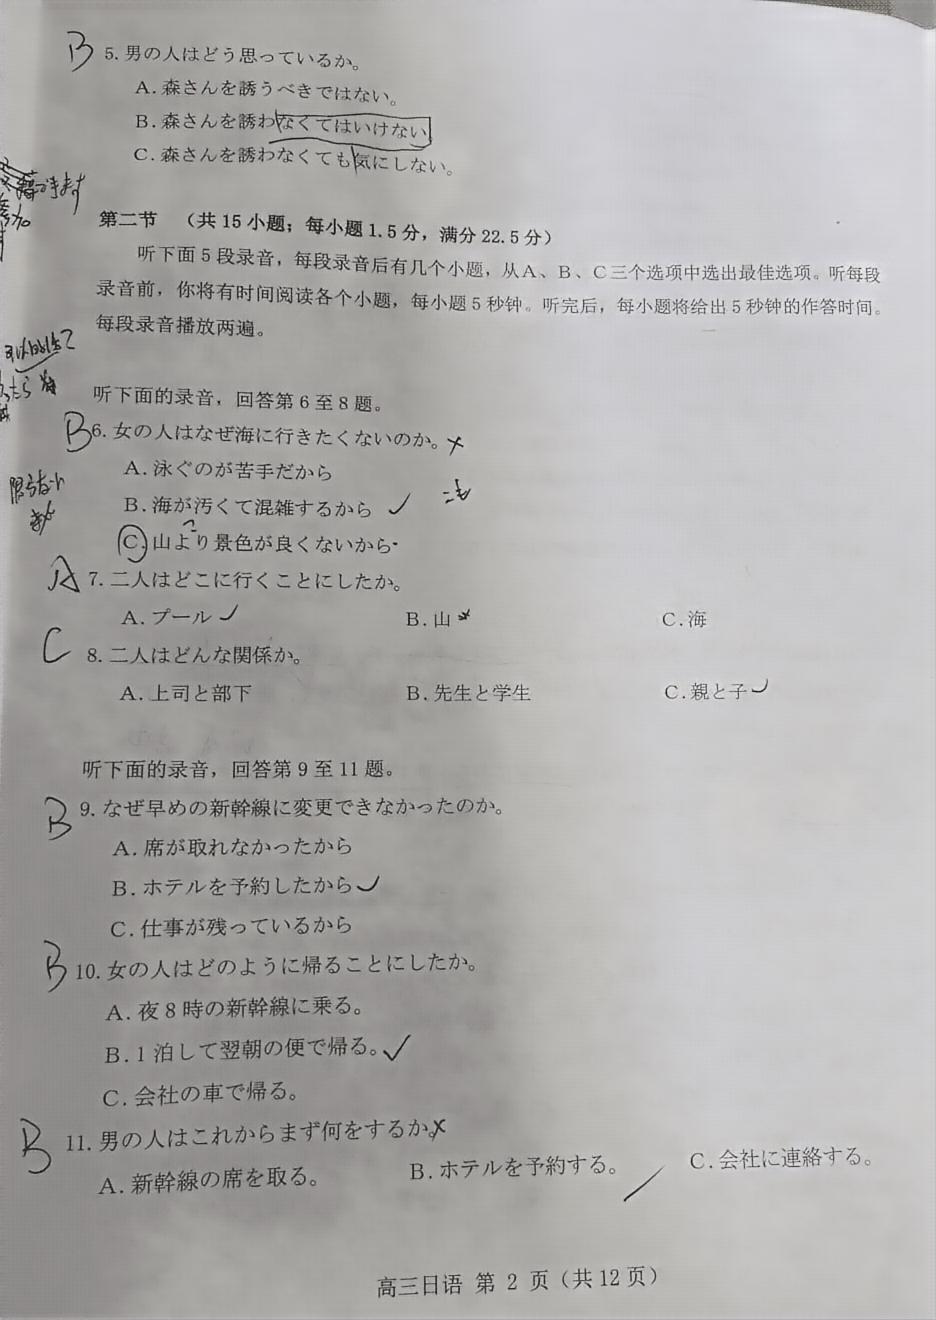 B 5. 男の人はどう思っているか。
A. 森さんを誘うべきではない。
B. 森さんを誘わなくてはいけない。
C. 森さんを誘わなくても気にしない。
第二节 （共 15 小题；每小题 1.5 分，满分 22.5 分）
听下面 5 段录音，每段录音后有几个小题，从A、B、C三个选项中选出最佳选项。听每段
录音前，你将有时间阅读各个小题，每小题 5 秒钟。听完后，每小题将给出 5 秒钟的作答时间。
每段录音播放两遍。
听下面的录音，回答第 6 至 8 题。
B 6. 女の人はなぜ海に行きたくないのか。
A. 泳ぐのが苦手だから
B. 海が汚くて混雑するから
C. 山より景色が良くないから
A 7. 二人はどこに行くことにしたか。
A. プール B. 山 C. 海
C 8. 二人はどんな関係か。
A. 上司と部下 B. 先生と学生 C. 親と子
听下面的录音，回答第 9 至 11 题。
B 9. なぜ早めの新幹線に変更できなかったのか。
A. 席が取れなかったから
B. ホテルを予約したから
C. 仕事が残っているから
B 10. 女の人はどのように帰ることにしたか。
A. 夜 8 時の新幹線に乗る。
B. 1 泊して翌朝の便で帰る。
C. 会社の車で帰る。
B 11. 男の人はこれからまず何をするか。
A. 新幹線の席を取る。 B. ホテルを予約する。 C. 会社に連絡する。
高三日语 第 2 页（共 12 页）